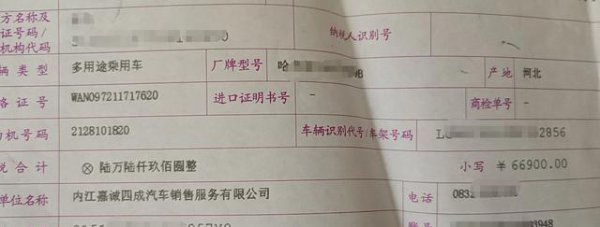 方名称及
证号码/ 纳税人识别号
机构代码
辆类型 多用途乘用车 厂牌型号 哈 产地 河北
格证号 WAN097211717620 进口证明书号 - 商检单号 -
机号码 2128101820 车辆识别代号/车架号码 2856
税合计 ⊗陆万陆仟玖佰圆整 小写 ￥66900.00
单位名称 内江嘉诚四成汽车销售服务有限公司 电话 0832
账号 03948